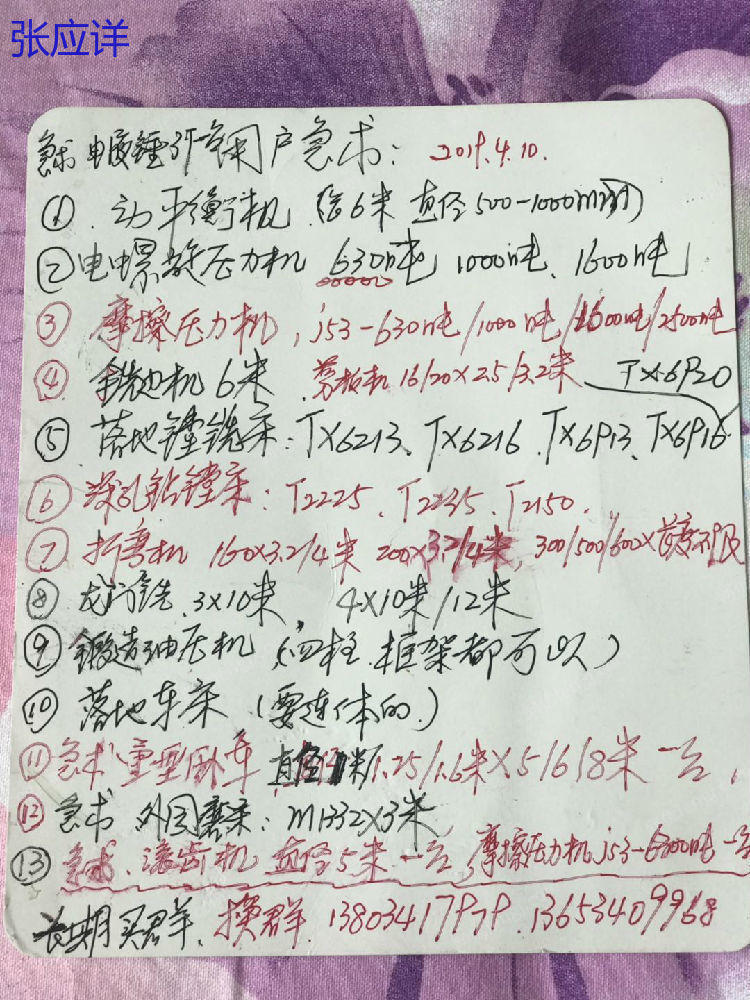 张应详
急求电液锤 用户急求: 2019.4.10.
① 动平衡机 6米 直径500-1000mm
② 电螺旋压力机 630吨 1000吨、1600吨
③ 摩擦压力机, J53-630吨/1000吨/1600吨/2500吨
④ 铣边机 6米 剪板机 16/20×2.5/3.2米 TX6920
⑤ 落地镗铣床: TX6213、TX6216、TX6913、TX6916
⑥ 深孔钻镗床: T2225、T2235、T2150.
⑦ 折弯机 160×3.2/4米 200×3.2/4米, 300/500/600×
⑧ 龙门铣 3×10米, 4×10米/12米
⑨ 锻造油压机 (四柱、框架都可以)
⑩ 落地车床 (要连体的)
⑪ 急求重型卧车 直径 /1.25/1.6米×5/6/8米 一台,
⑫ 急求 外圆磨床: M1332×3米
⑬ 急求、滚齿机 直径5米 一台, 摩擦压力机J53-6300吨一台
长期买群、换群 13803417979 13653409968